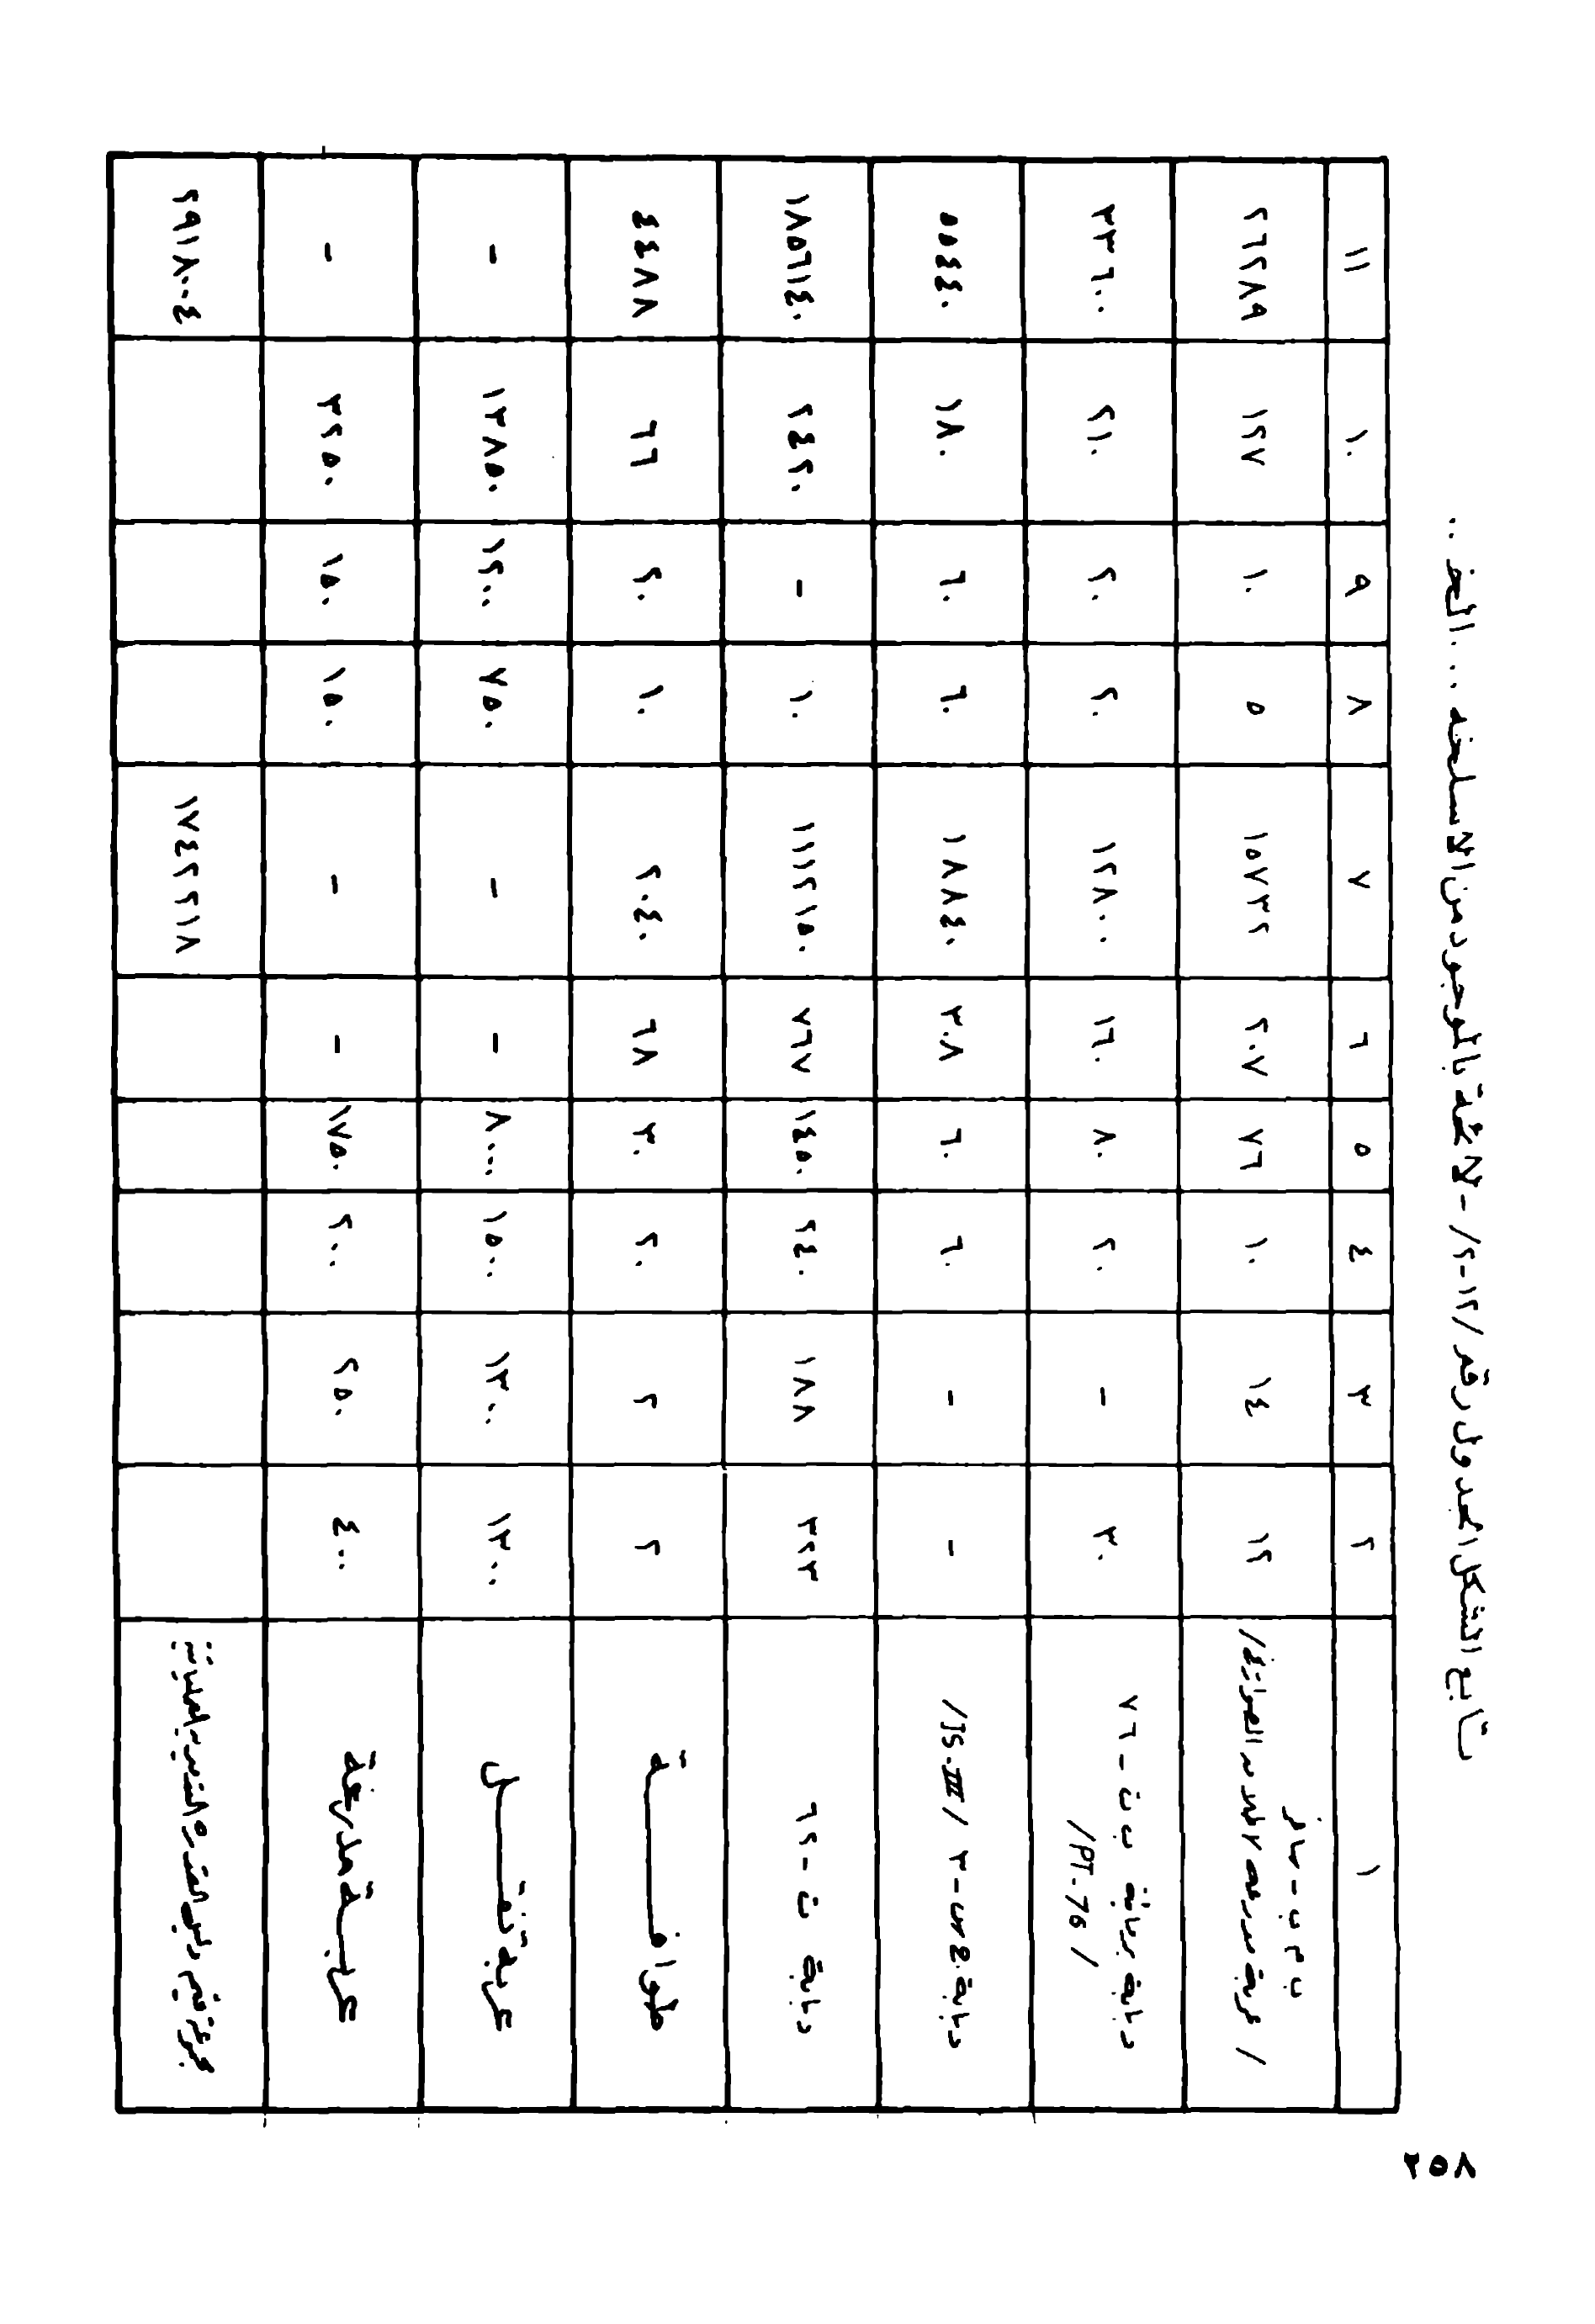 تابع الشكل الجدول رقم /١٢-٢/ - لائحة بالموجود من الاسلحة ... الخ ..
١ ٢ ٣ ٤ ٥ ٦ ٧ ٨ ٩ ١٠ ١١
ب م ب - ساف
١٢ ١٤ ١٠ ٧٦ ٢٠٧ ١٥٧٣٢ ٥ ١٠ ١٢٧ ٢٦٢٨٩
دبابة برمائية ب ت - ٧٦ /PT-76/ ٣٠ - ٢٠ ٨٠ ١٦٠ ١٢٨٠٠ ٢٠ ٢٠ ٢١٠ ٣٣٦٠٠
دبابة ج س - ٣ /JS-III/ - - ٦٠ ٦٠ ٣٠٨ ١٨٨٤٠ ٦٠ ٦٠ ١٨٠ ٥٥٤٤٠
دبابة ت - ٦٢ ٣٢٣ ١٨٨ ٢٤٠ ١٤٥٠ ٧٦٧ ١١١٢١٥٠ ١٠ - ٢٤٢٠ ١٨٥٦١٤٠
طوافة ٢ ٢ ٢٠ ٣٠ ٦٨ ٢٠٤٠ ١٠ ٢٠ ٦٦ ٤٤٨٨
عربة نقل ١٣٠٠ ١٣٠٠ ١٥٠٠ ٨٠٠٠ - - ٧٥٠ ١٢٠٠ ١٣٨٥٠ -
عربة مدرعة ٤٠٠ ٢٥٠ ٢٠٠ ١٧٥٠ - - ١٥٠ ١٥٠ ٣٢٥٠ -
١٧٤٢٢١٨ ٢٩١٨٠٠٤
٢٥٨